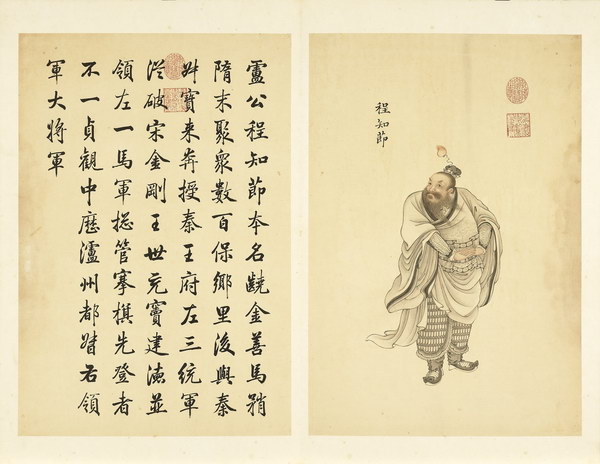 程知節
盧公程知節夲名齩金善馬矟
隋末聚衆數百保鄉里後與秦
叔寶来奔授秦王府左三統軍
從破宋金剛王世充竇建德並
領左一馬軍揔管搴旗先登者
不一貞觀中歷瀘州都督右領
軍大將軍